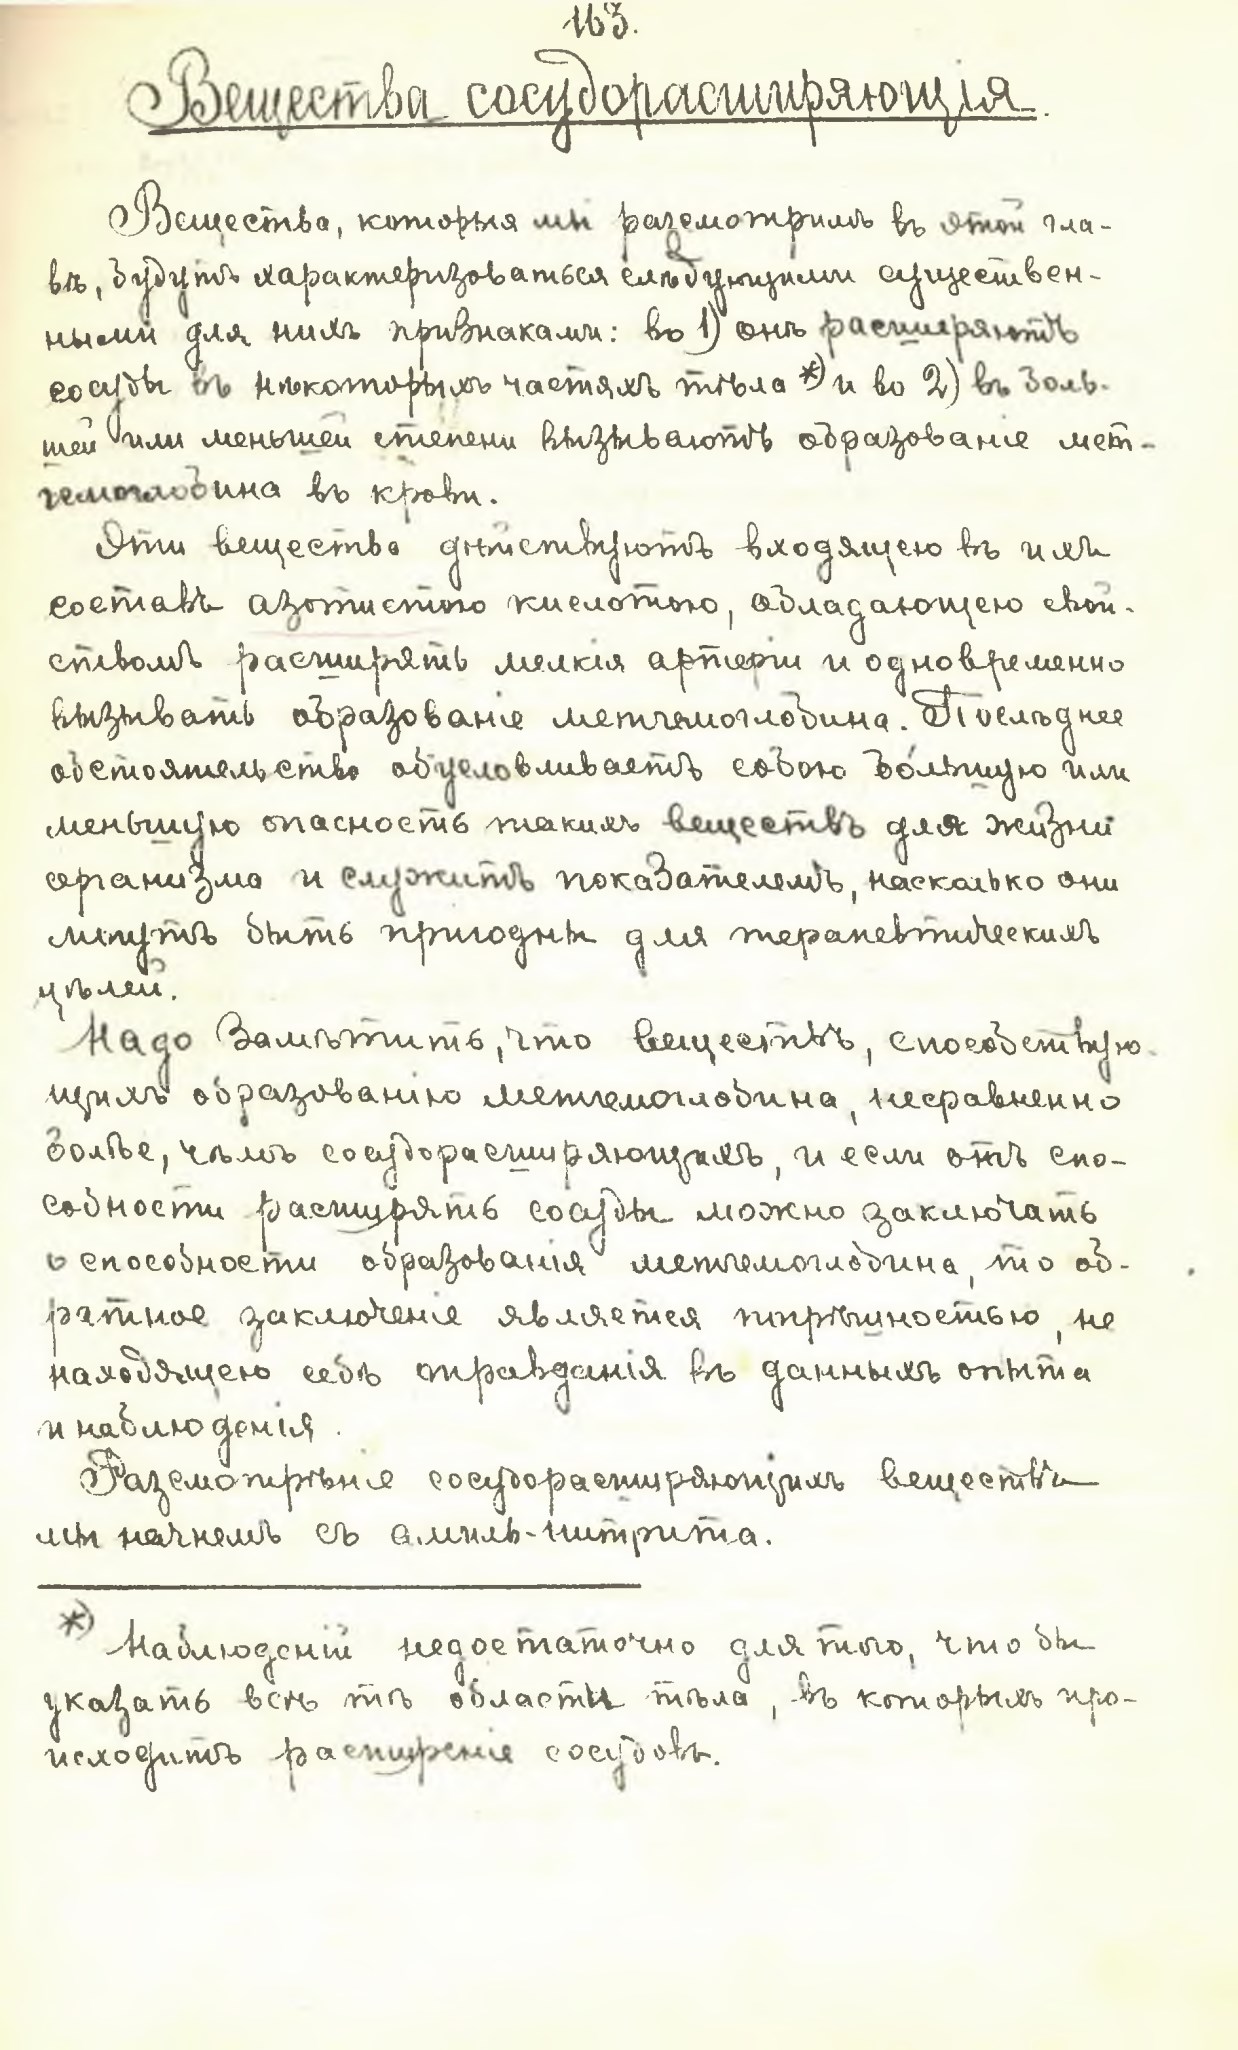 163.
Вещества сосудорасширяющія.
Вещества, которыя мы разсмотримъ въ этой гла-
вѣ, будутъ характеризоваться слѣдующими существен-
ными для нихъ признаками: во 1) онѣ расширяютъ
сосуды въ нѣкоторыхъ частяхъ тѣла *) и во 2) въ боль-
шей или меньшей степени вызываютъ образованіе мет-
гемоглобина въ крови.
Эти вещества дѣйствуютъ входящею въ ихъ
составъ азотистою кислотою, обладающею свой-
ствомъ расширять мелкія артеріи и одновременно
вызывать образованіе метгемоглобина. Послѣднее
обстоятельство обусловливаетъ собою бо́льшую или
меньшую опасность такихъ веществъ для жизни
организма и служитъ показателемъ, насколько они
могутъ быть пригодны для терапевтическихъ
цѣлей.
Надо замѣтить, что веществъ, способствую-
щихъ образованію метгемоглобина, несравненно
болѣе, чѣмъ сосудорасширяющихъ, и если отъ спо-
собности расширять сосуды можно заключать
о способности образованія метгемоглобина, то об-
ратное заключеніе является погрѣшностью, не
находящею себѣ оправданія въ данныхъ опыта
и наблюденія.
Разсмотрѣніе сосудорасширяющихъ веществъ
мы начнемъ съ амилъ-нитрита.
*) Наблюденій недостаточно для того, что бы
указать всѣ тѣ области тѣла, въ которыхъ про-
исходитъ расширеніе сосудовъ.